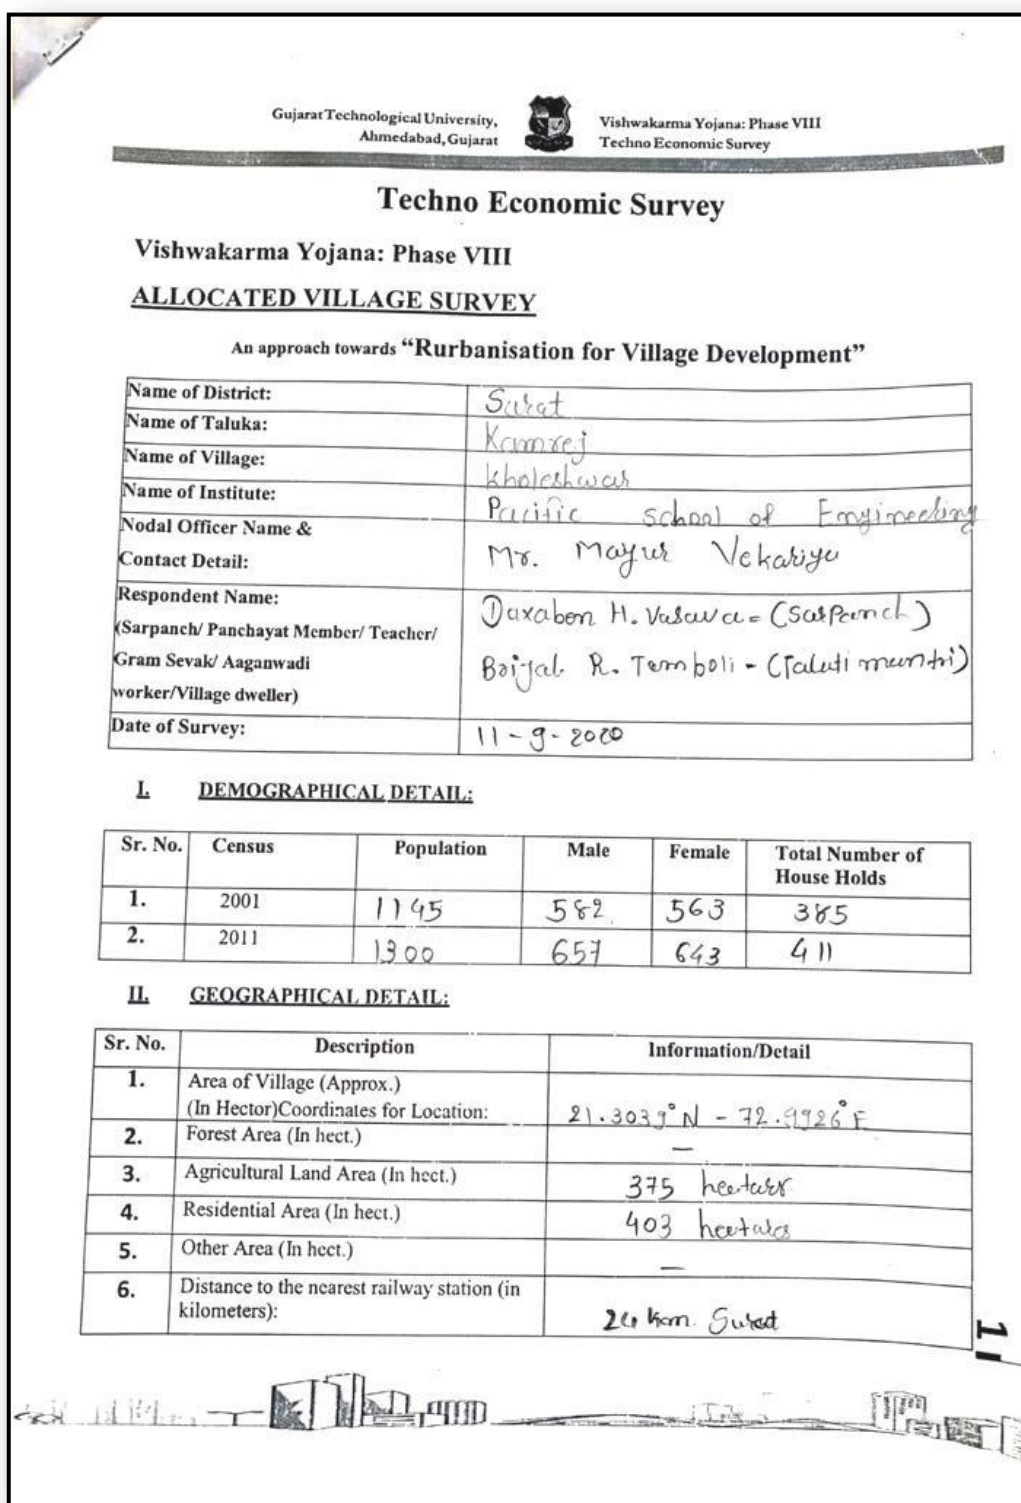 Gujarat Technological University,
Ahmedabad, Gujarat
Vishwakarma Yojana: Phase VIII
Techno Economic Survey
Techno Economic Survey
Vishwakarma Yojana: Phase VIII
ALLOCATED VILLAGE SURVEY
An approach towards “Rurbanisation for Village Development”
Name of District: Surat
Name of Taluka: Kamrej
Name of Village: Kholeshwar
Name of Institute: Pacific school of Engineering
Nodal Officer Name &
Contact Detail: Mr. Mayur Vekariya
Respondent Name:
(Sarpanch/ Panchayat Member/ Teacher/
Gram Sevak/ Aaganwadi
worker/Village dweller)
Daxaben H. Vasava = (Sarpanch)
R. Tamboli - (Talati mantri)
Date of Survey: 11-9-2020
I. DEMOGRAPHICAL DETAIL:
Sr. No. Census Population Male Female Total Number of
House Holds
1. 2001 1145 582 563 385
2. 2011 1300 657 643 411
II. GEOGRAPHICAL DETAIL:
Sr. No. Description Information/Detail
1. Area of Village (Approx.)
(In Hector)Coordinates for Location: 21.3039°N - 72.9926°E
2. Forest Area (In hect.) —
3. Agricultural Land Area (In hect.) 375 hectars
4. Residential Area (In hect.) 403 hectars
5. Other Area (In hect.) —
6. Distance to the nearest railway station (in
kilometers): 24 km. Surat
1